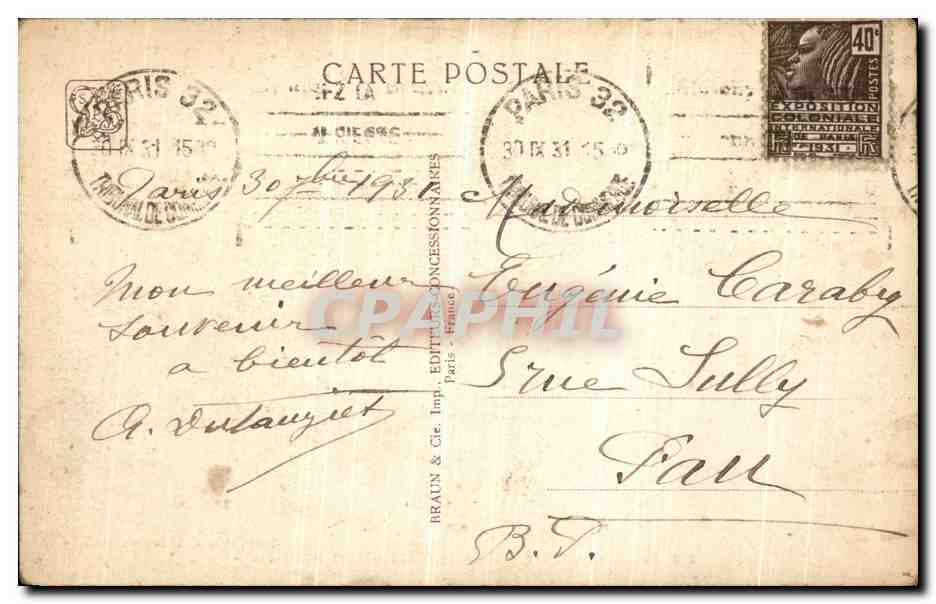 CARTE POSTALE
PARIS 32
30 IX 31 15
PARIS 32
30 IX 31 15
40c
POSTES
EXPOSITION
COLONIALE
INTERNATIONALE
DE PARIS
1931
Paris 30 7bre 1931
Mon meilleur
souvenir
a bientôt
Mademoiselle
Eugénie Caraby
5 rue Sully
Pau
B. P.
BRAUN & Cie. Imp., EDITEURS-CONCESSIONNAIRES
Paris - France
CPAPHIL